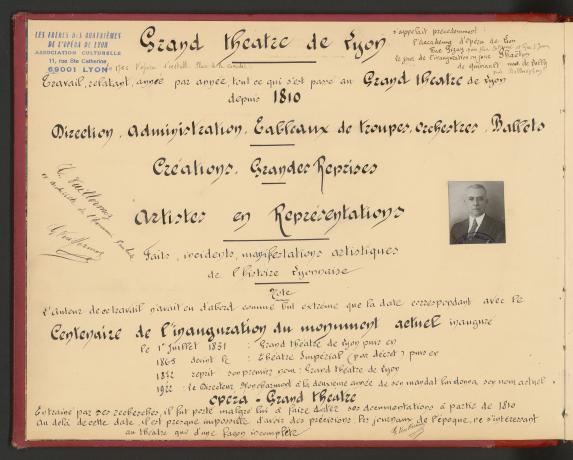 LES FRÈRES DES QUATRIÈMES
DE L'OPÉRA DE LYON
ASSOCIATION CULTURELLE
11, rue Ste Catherine
69001 LYON
Grand théâtre de Lyon
s'appelait précédemment :
l'académie d'opéra de Lyon
le jour de l'inauguration on joue Phaéton
de Quinault
Travail, relatant, année par année, tout ce qui s'est passé au Grand théâtre de Lyon
depuis 1810
Direction, Administration, Tableaux de troupes, Orchestres, Ballets
Créations, Grandes Reprises
Artistes en Représentations
Faits, incidents, manifestations artistiques
de l'histoire Lyonnaise
Note
L'Auteur de ce travail n'avait eu d'abord comme but extrême que la date correspondant avec le
Centenaire de l'inauguration du monument actuel inauguré
le 1er Juillet 1831 : Grand théâtre de Lyon puis en
1865 devint le : Théâtre Impérial (par décret) puis en
reprit son premier nom : Grand théâtre de Lyon
1922 : le Directeur Moncharmont à la deuxième année de son mandat lui donna son nom actuel
opéra - Grand théâtre
Entrainé par ses recherches, il fut porté malgré lui à faire dater ses documentations à partir de 1810
au delà de cette date, il est presque impossible d'avoir des précisions. Les journaux de l'époque, ne s'intéressant
au théâtre que d'une façon incomplète